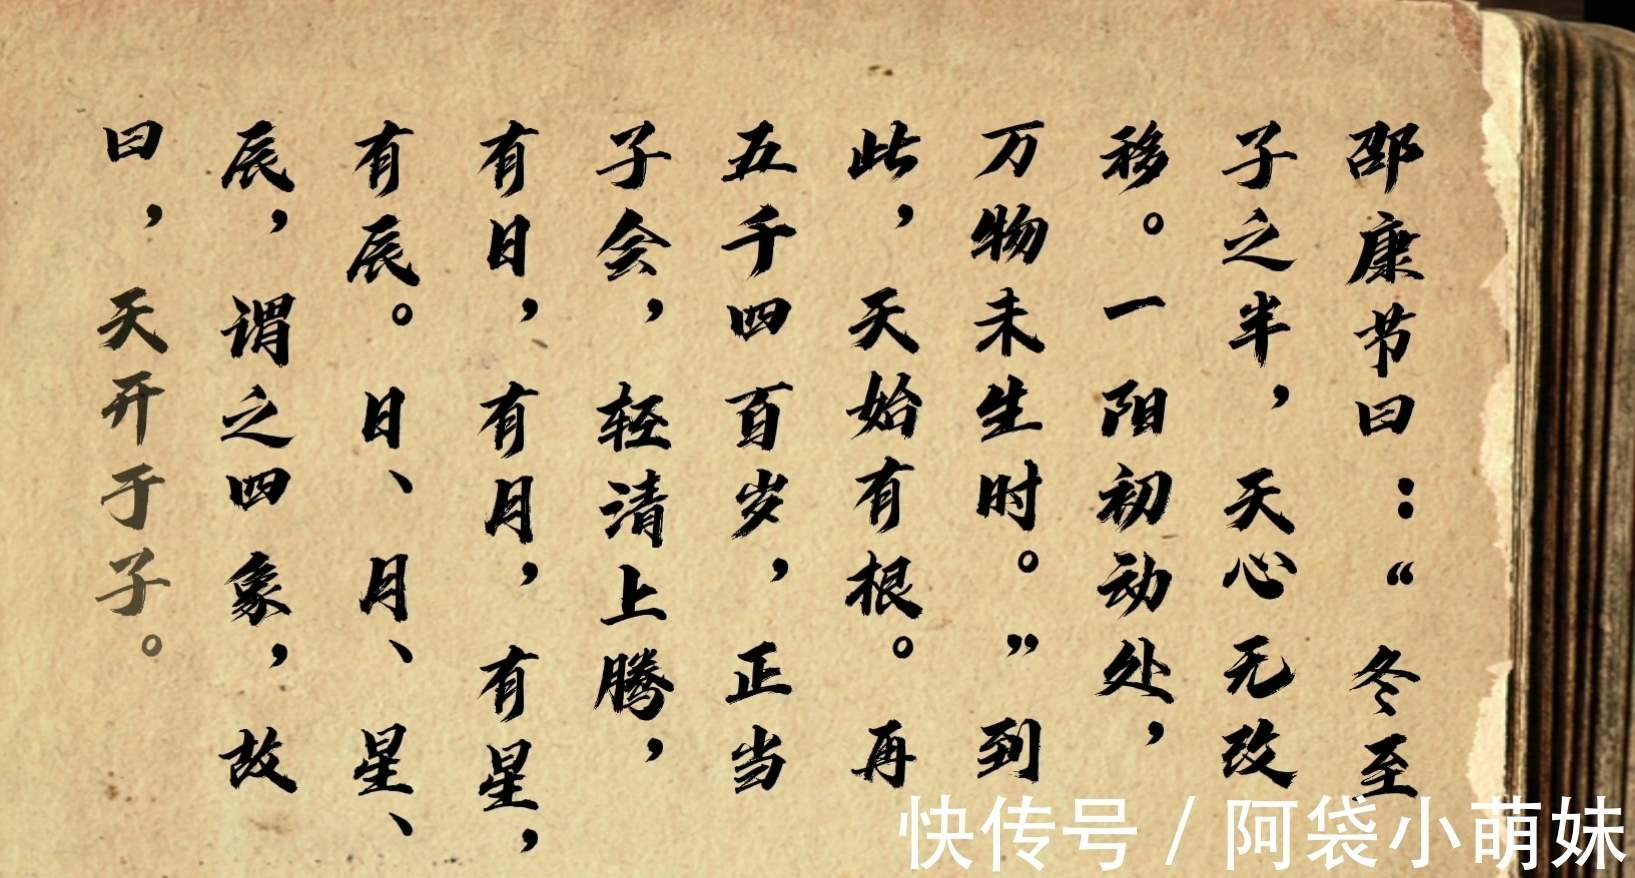 邵康节曰：“冬至
子之半，天心无改
移。一阳初动处，
万物未生时。”到
此，天始有根。再
五千四百岁，正当
子会，轻清上腾，
有日，有月，有星，
有辰。日、月、星、
辰，谓之四象，故
曰，天开于子。
快传号/阿袋小萌妹